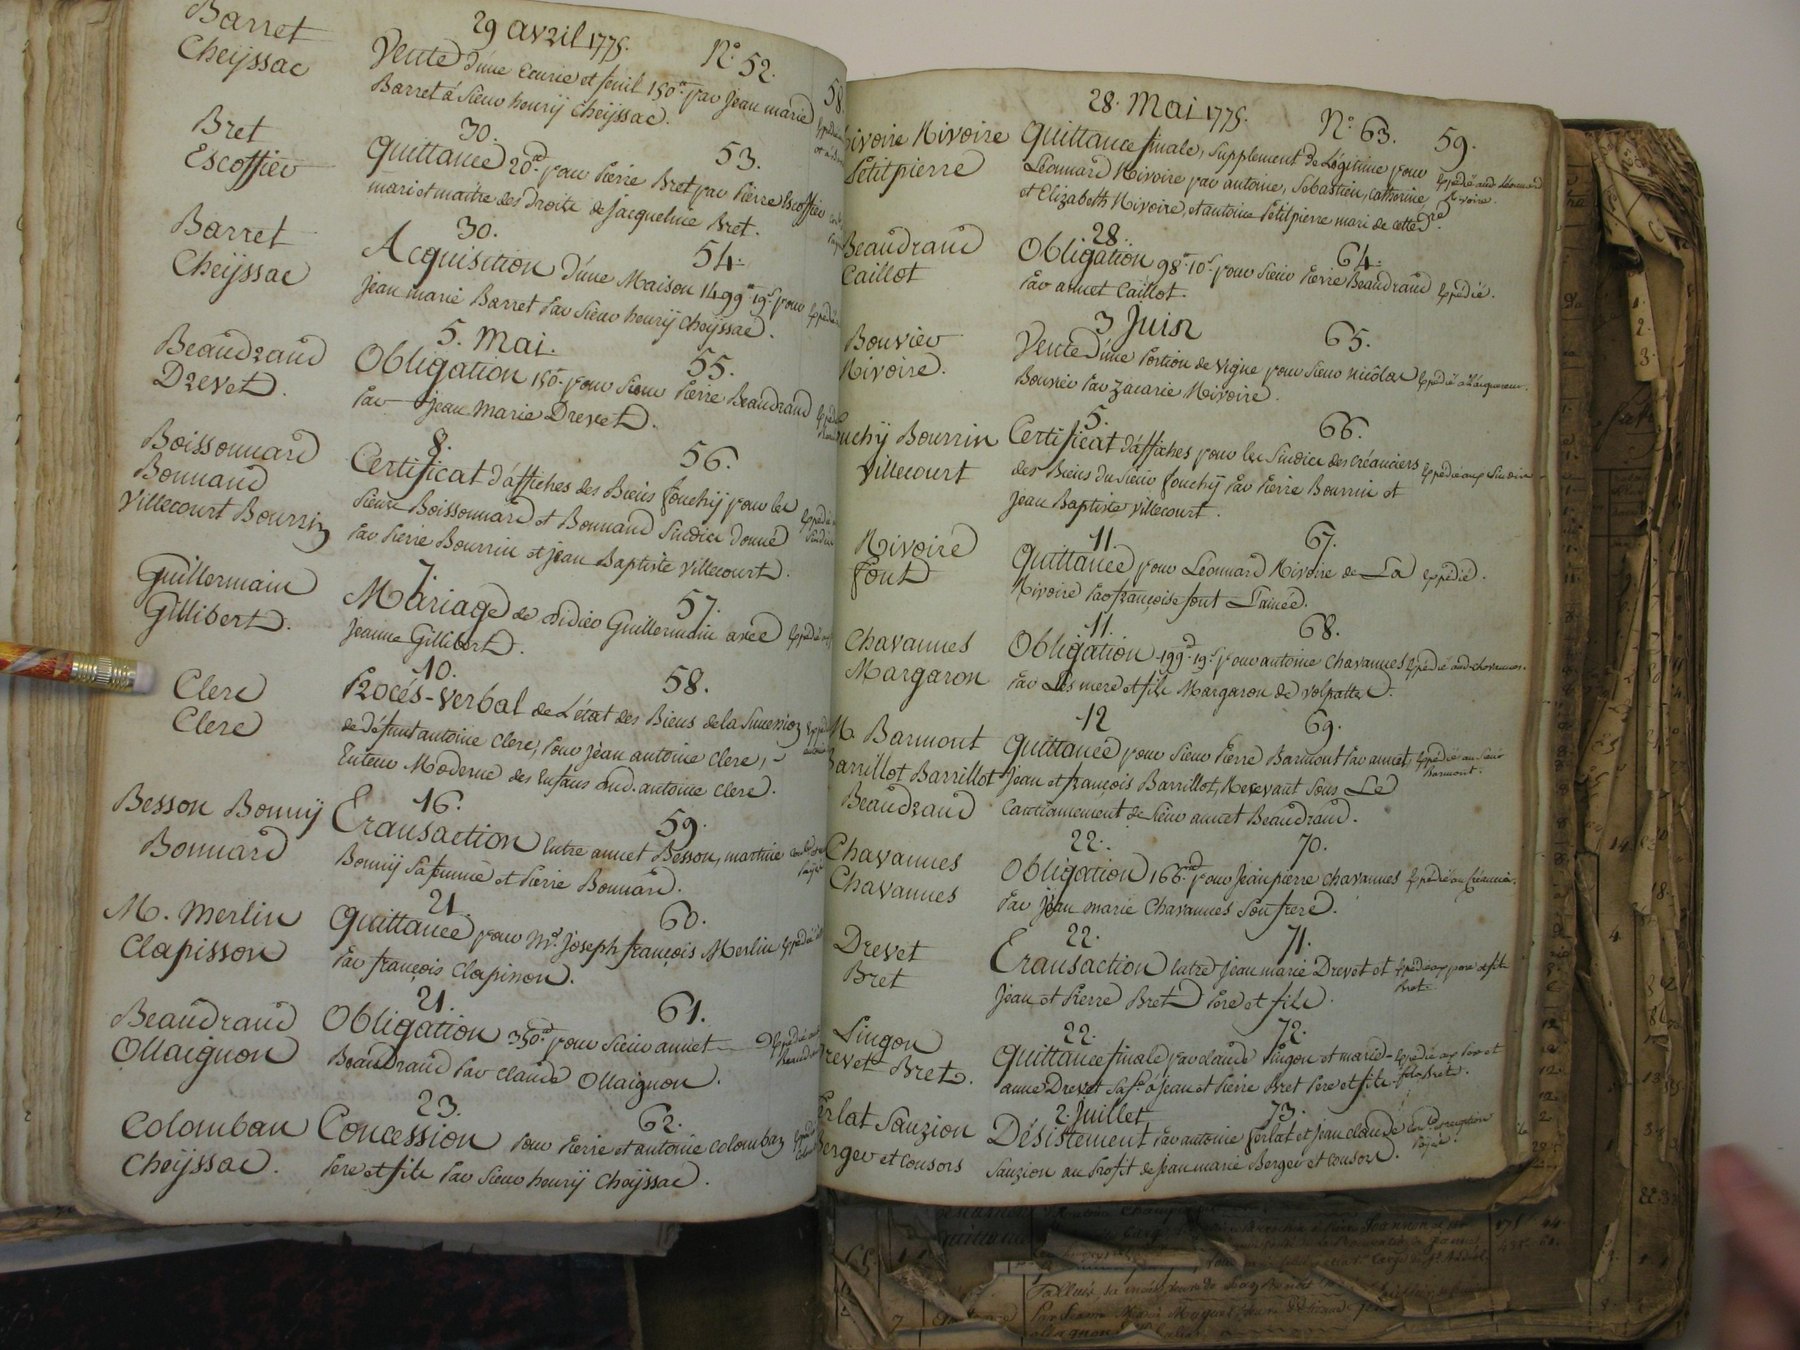 29 avril 1775. N.º 52. 58.
Barret
Cheÿssac
Vente d'une Ecurie et fenil 150.ᵗᵗ par Jean marie
Barret à Sieur henrÿ Cheÿssac.
30. 53.
Bret
Escoffier
Quittance 20.ᵗᵗ pour Pierre Bret par Pierre Escoffier
mari et maitre des Droits de Jacqueline Bret.
30. 54.
Barret
Cheÿssac
Acquisition d'une Maison 1499.ᵗᵗ 19.ˢ pour
Jean marie Barret Par Sieur henrÿ Cheÿssac.
5. Mai. 55.
Beaudrand
Drevet.
Obligation 150.ᵗᵗ pour Sieur Pierre Beaudrand
Par Jean Marie Drevet.
8. 56.
Boissonnard
Bonnard
Villecourt Bourrin
Certificat d'affiches des Biens fouchÿ pour les
Sieurs Boissonnard et Bonnard Sindics donné
Par Pierre Bourrin et jean Baptiste Villecourt.
7. 57.
Guillermain
Gillibert.
Mariage de Didier Guillermain avec
Jeanne Gillibert.
10. 58.
Clerc
Clerc
Procés-Verbal de L'état des Biens de la Succession
de défunt antoine Clerc, Pour Jean antoine Clerc,
Tuteur Moderne des Enfans dud. antoine Clerc.
16. 59.
Besson Bonnÿ
Bonnard
Transaction Entre annet Besson, martine
Bonnÿ Sa femme et Pierre Bonnard.
21. 60.
M. Merlin
Clapisson
Quittance pour M.ᵉ Joseph françois Merlin
Par françois Clapisson.
21. 61.
Beaudrand
Ollaignon
Obligation 350.ᵗᵗ pour Sieur annet
Beaudrand Par Claude Ollaignon.
23. 62.
Colomban
Cheÿssac.
Concession Pour Pierre et antoine Colomban
Pere et fils Par Sieur henrÿ Cheÿssac.
28. Mai 1775. N.º 63. 59.
Rivoire Rivoire
Petitpierre
Quittance finale, Supplement de Légitime pour
Léonnard Rivoire par antoine, Sébastien, Catherine,
et Elizabeth Rivoire, et antoine Petitpierre mari de cette d.ʳᵉ
Expédié aud. Léonnard
Rivoire.
28. 64.
Beaudrand
Caillot
Obligation 98.ᵗᵗ 10.ˢ pour Sieur Pierre Beaudrand Expédié.
Par annet Caillot.
3 Juin 65.
Bouvier
Rivoire.
Vente d'une Portion de Vigne pour Sieur nicolas Expédié à L'acquereur.
Bouvier Par Zacarie Rivoire.
5. 66.
Bourrin
Villecourt
Certificat d'affiches pour les Sindics des Créanciers Expédié aux Sindics
des Biens du Sieur fouchÿ Par Pierre Bourrin et
Jean Baptiste Villecourt.
11. 67.
Rivoire
font
Quittance pour Léonnard Rivoire de La Expédié.
Rivoire Par françoise font L'ainée.
11. 68.
Chavannes
Margaron
Obligation 199.ᵗᵗ 19.ˢ pour antoine Chavannes Expédié aud. Chavannes.
Par Les mere et fils Margaron de Volpatte.
12 69.
M. Barmont
Barrillot Barrillot
Beaudrand
Quittance pour Sieur Pierre Barmont Par annet, Expédié au Sieur
Barmont.
Jean et françois Barrillot, Recevant Sous Le
Cautionnement de Sieur annet Beaudrand.
22. 70.
Chavannes
Chavannes
Obligation 166.ᵗᵗ pour Jean pierre Chavannes Expédié au Créancier.
Par jean marie Chavannes Son frere.
22. 71.
Drevet
Bret
Transaction Entre Jean marie Drevet et Expédié aux pere et fils
Bret.
Jean et Pierre Bret Pere et fils.
22. 72.
Lingon
Drevet Bret.
Quittance finale par Claude Lingon et marie Expédié aux Pere et
fils Bret.
anne Drevet Sa f.ᵉ à Jean et Pierre Bret Pere et fils
2. Juillet 73.
ferlat Sauzion
Berger et Consors
Désistement Par antoine ferlat et jean Claude
Sauzion au Profit de Jean marie Berger et Consors.